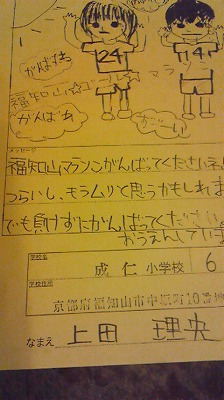 がんばれ
124
114
福知山☆マラ
がんばれ
すごーい
メッセージ
福知山マラソンがんばってくださいネ
つらいし、もうムリと思うかもしれま
でも負けずにがんばってください
おうえんしていま
学校名
成仁 小学校
6
学校住所
京都府福知山市中坂町10番地
なまえ
上田 理央